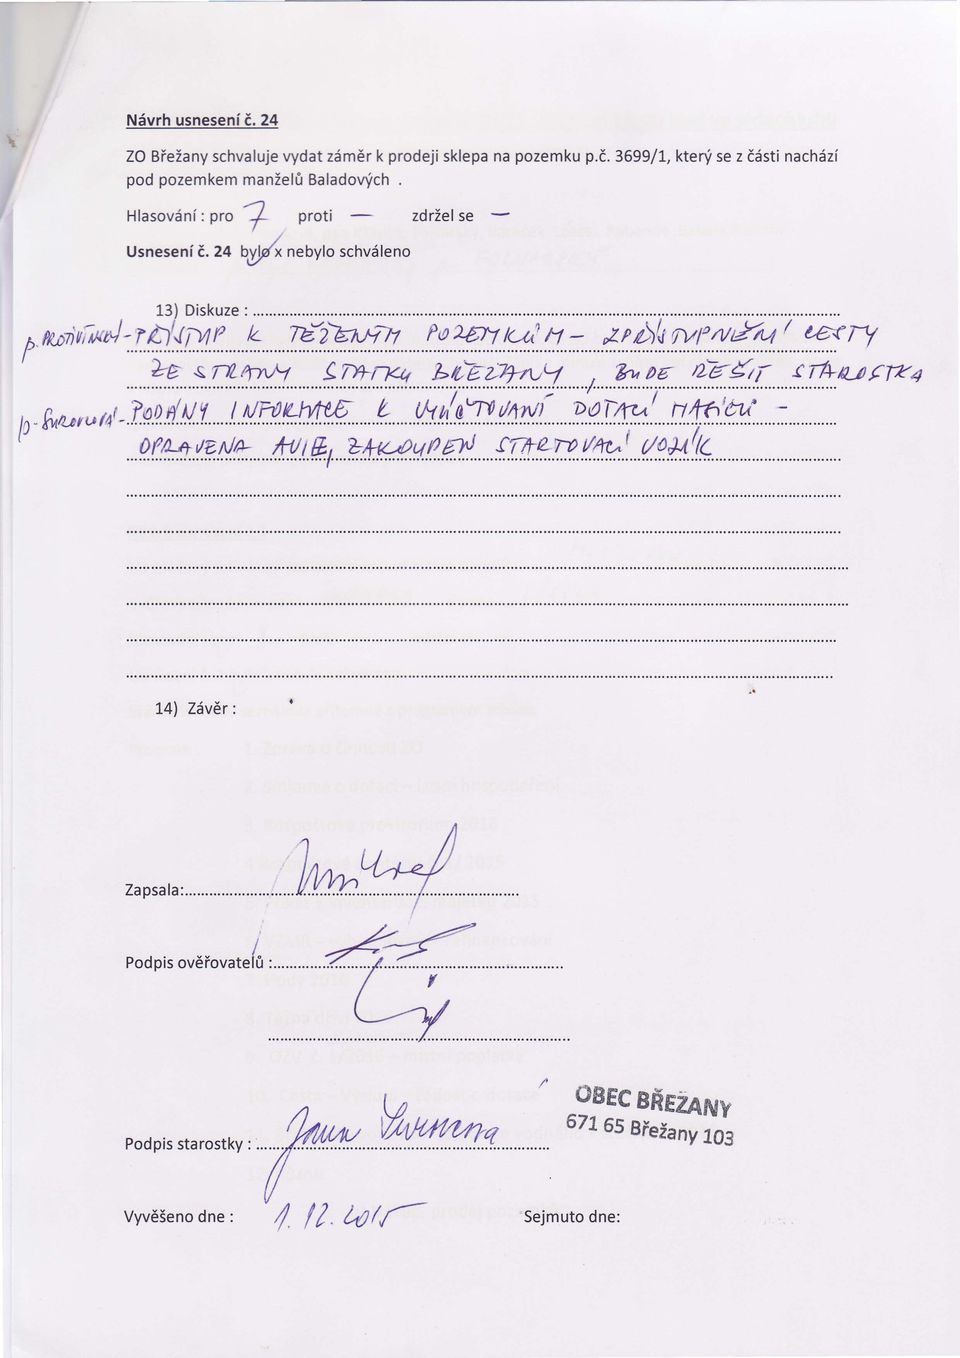 Návrh usnesení č. 24
ZO Břežany schvaluje vydat záměr k prodeji sklepa na pozemku p.č. 3699/1, který se z části nachází
pod pozemkem manželů Baladových .
Hlasování : pro 7 proti — zdržel se —
Usnesení č. 24 bylo x nebylo schváleno
13) Diskuze :
p. - PŘÍSTUP K TĚŽENÝM POZEMKŮM - ZPŘÍSTUPNĚNÍ CESTY
ZE STRANY STATKU BŘEŽANY, BUDE ŘEŠIT STAROSTKA
p. - PODÁNY INFORMACE K VYÚČTOVÁNÍ DOTACÍ HASIČŮ -
OPRAVENA AVIE, ZAKOUPEN STARTOVACÍ VOZÍK
14) Závěr :
Zapsala:
Podpis ověřovatelů :
OBEC BŘEŽANY
671 65 Břežany 103
Podpis starostky :
Vyvěšeno dne : 1. 12. 2015 Sejmuto dne: